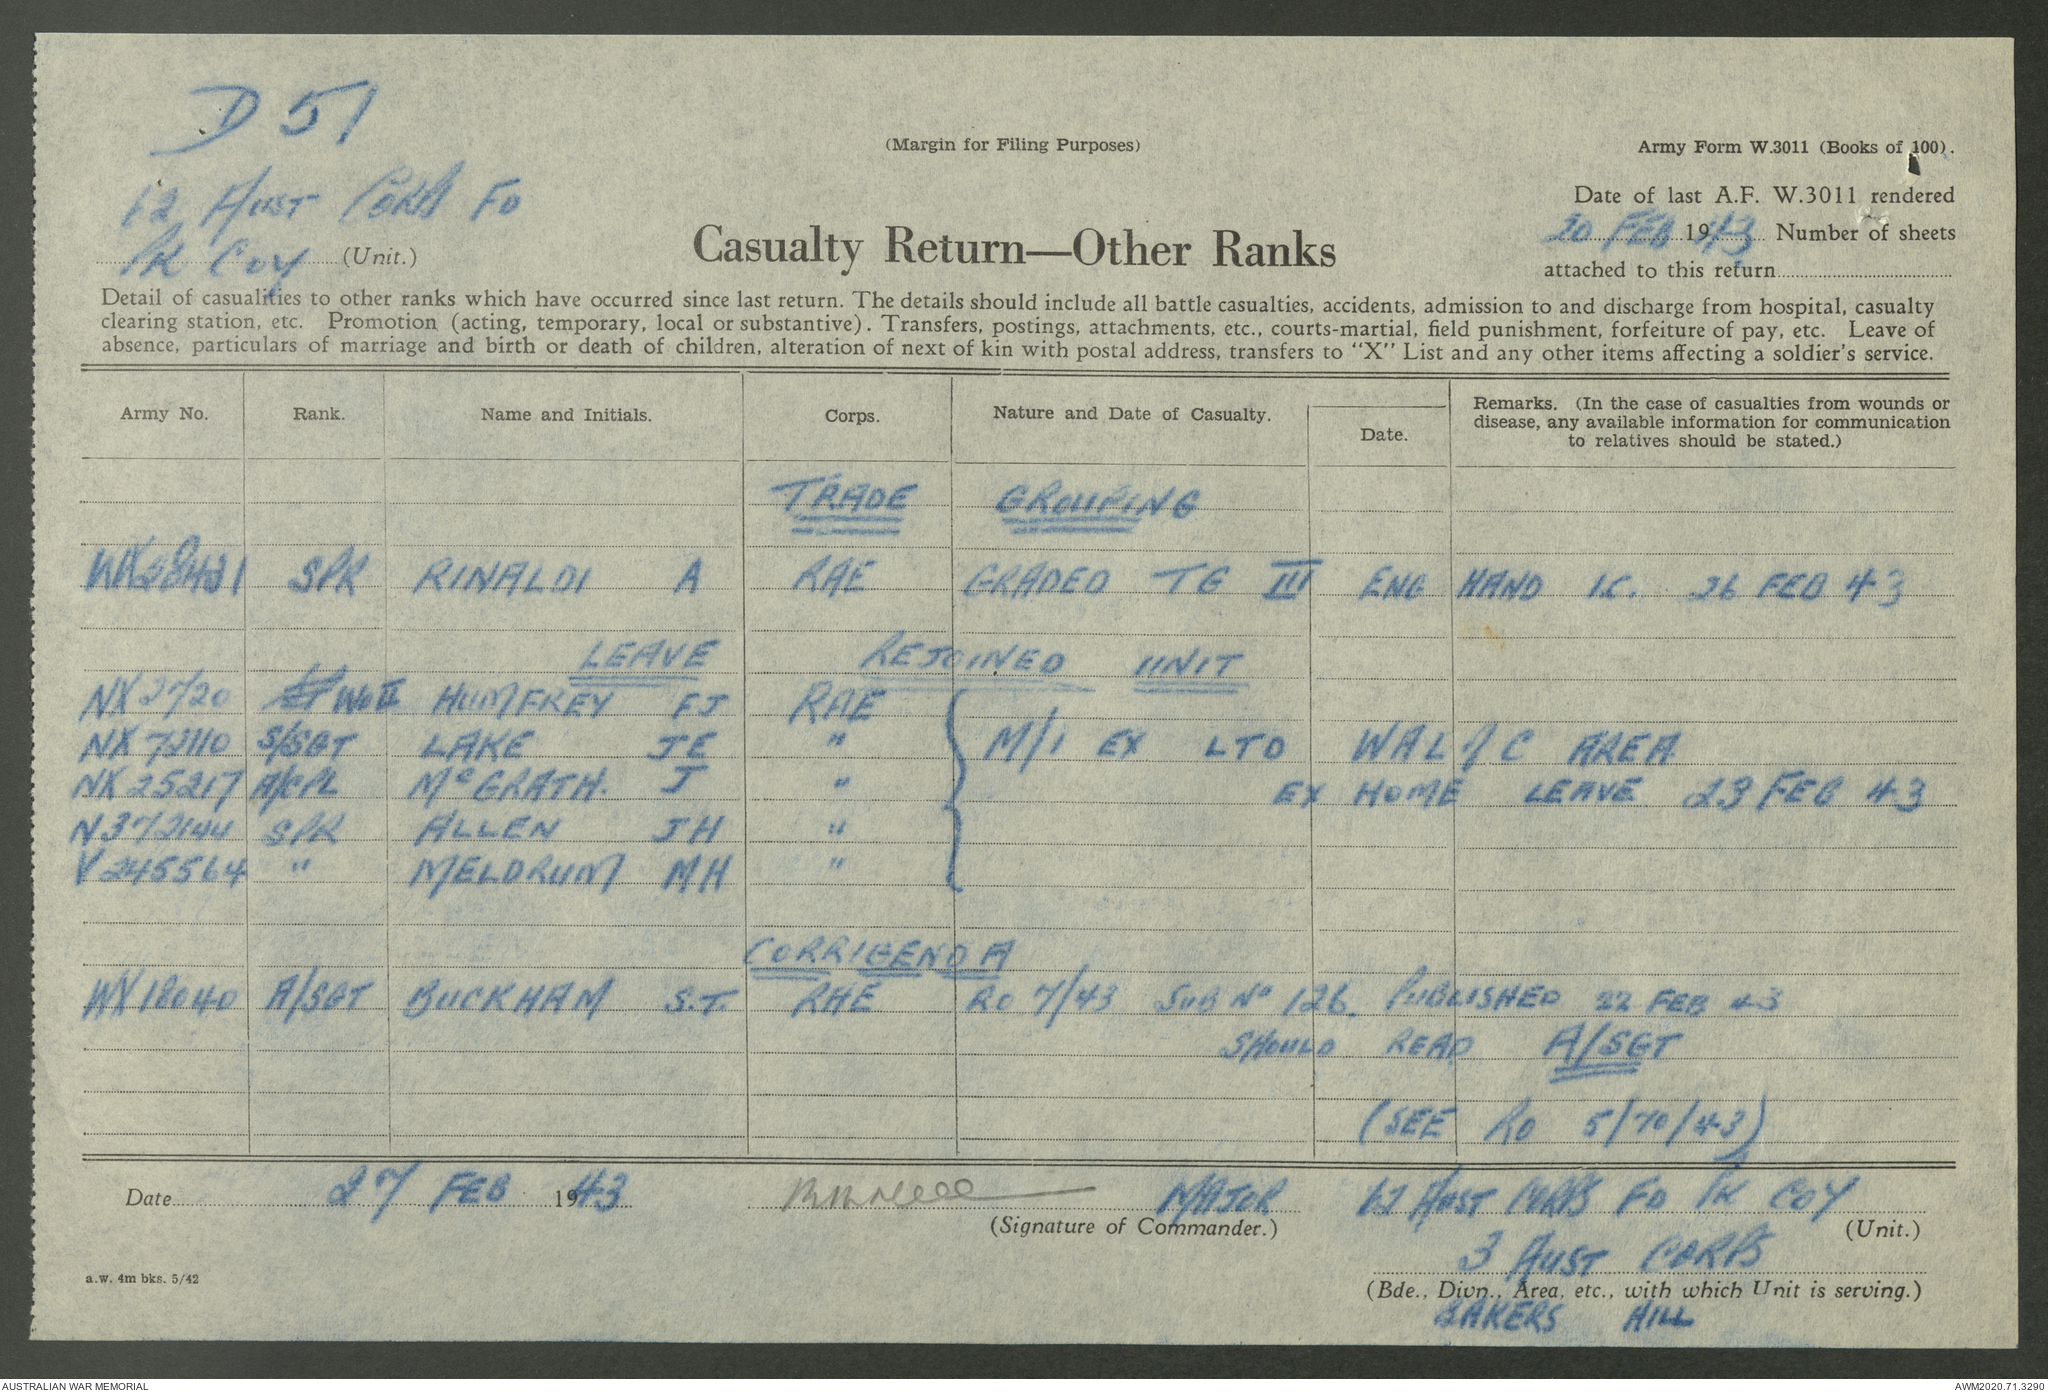 D 51
(Margin for Filing Purposes)
Army Form W.3011 (Books of 100).
62 Aust Corps Fd
Pk Coy (Unit.)
Casualty Return—Other Ranks
Date of last A.F. W.3011 rendered
20 FEB 1943 Number of sheets
attached to this return
Detail of casualities to other ranks which have occurred since last return. The details should include all battle casualties, accidents, admission to and discharge from hospital, casualty
clearing station, etc. Promotion (acting, temporary, local or substantive). Transfers, postings, attachments, etc., courts-martial, field punishment, forfeiture of pay, etc. Leave of
absence, particulars of marriage and birth or death of children, alteration of next of kin with postal address, transfers to "X" List and any other items affecting a soldier's service.
Army No. Rank. Name and Initials. Corps. Nature and Date of Casualty. Date. Remarks. (In the case of casualties from wounds or
disease, any available information for communication
to relatives should be stated.)
TRADE GROUPING
SPR RINALDI A RAE GRADED TG III ENG HAND IC. 26 FEB 43
LEAVE REJOINED UNIT
NX2720 WO II HUMFREY FJ RAE
NX72110 S/SGT LAKE JE " M/I EX LTD WAL / C AREA
NX25217 A/CPL McGRATH. J " EX HOME LEAVE 23 FEB 43
N372144 SPR ALLEN JH "
V245564 " MELDRUM MH "
CORRIGENDA
WX18040 A/SGT BUCKHAM S.T. RAE RO 7/43 SUB No 126. PUBLISHED 22 FEB 43
SHOULD READ A/SGT
(SEE RO 5/70/43)
Date 27 FEB 1943 MAJOR 62 Aust Corps Fd Pk Coy
(Signature of Commander.) (Unit.)
3 Aust Corps
a.w. 4m bks. 5/42
(Bde., Divn., Area, etc., with which Unit is serving.)
BAKERS HILL
AUSTRALIAN WAR MEMORIAL
AWM2020.71.3290